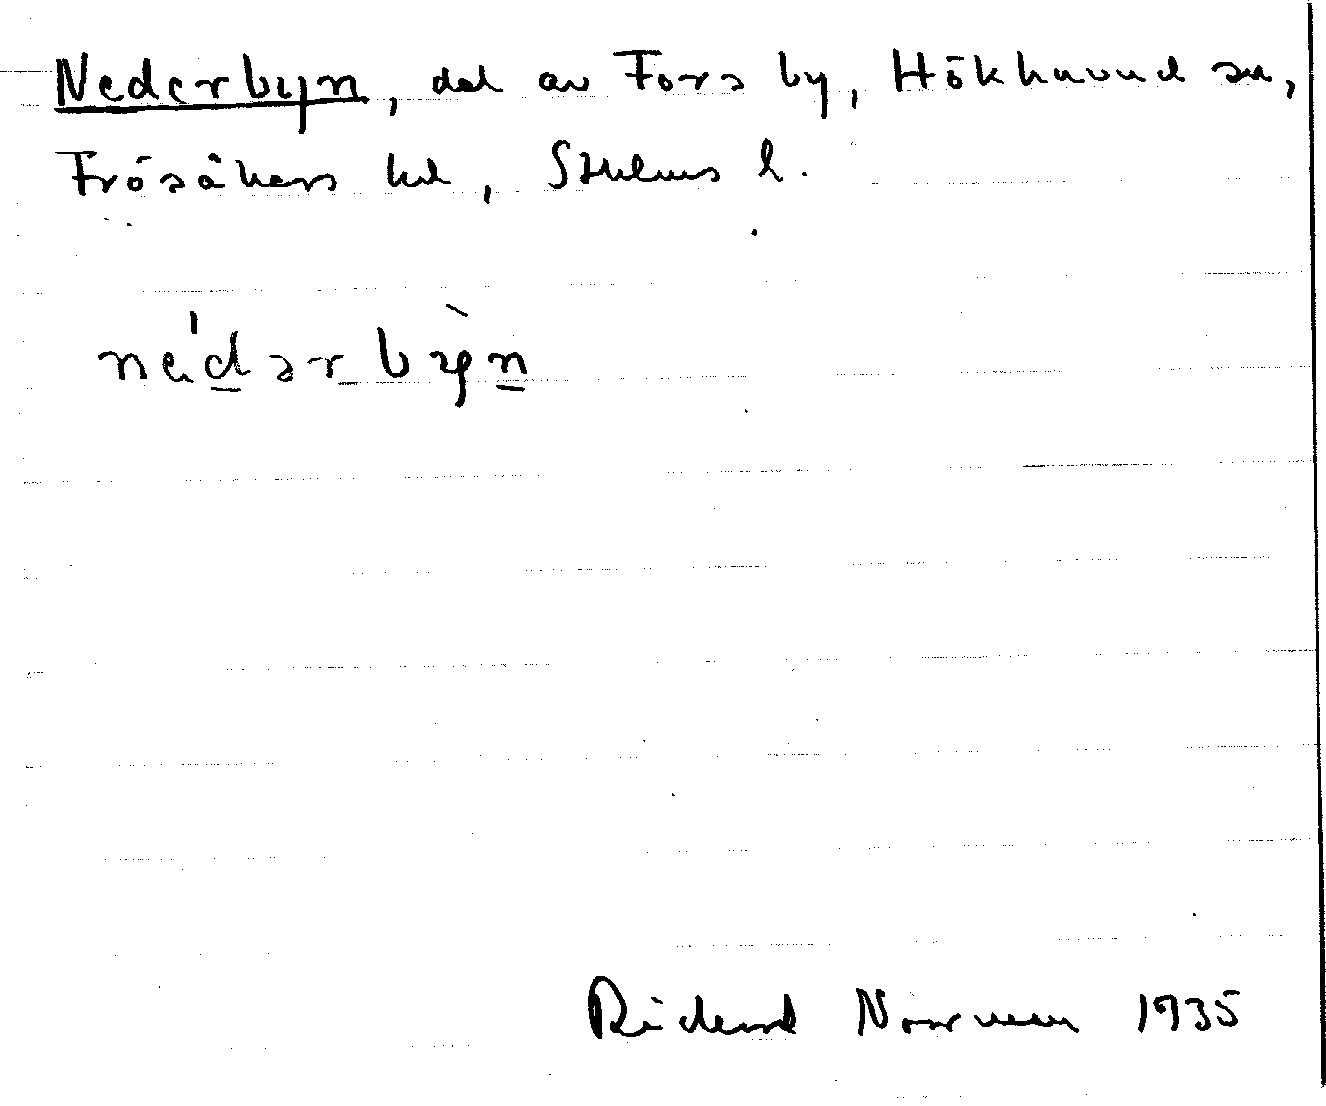 Nederbyn, del av Fors by, Hökhuvud sn,
Frösåkers hd, Sthlms l.
nedərbyn
Rickard Norrman 1935